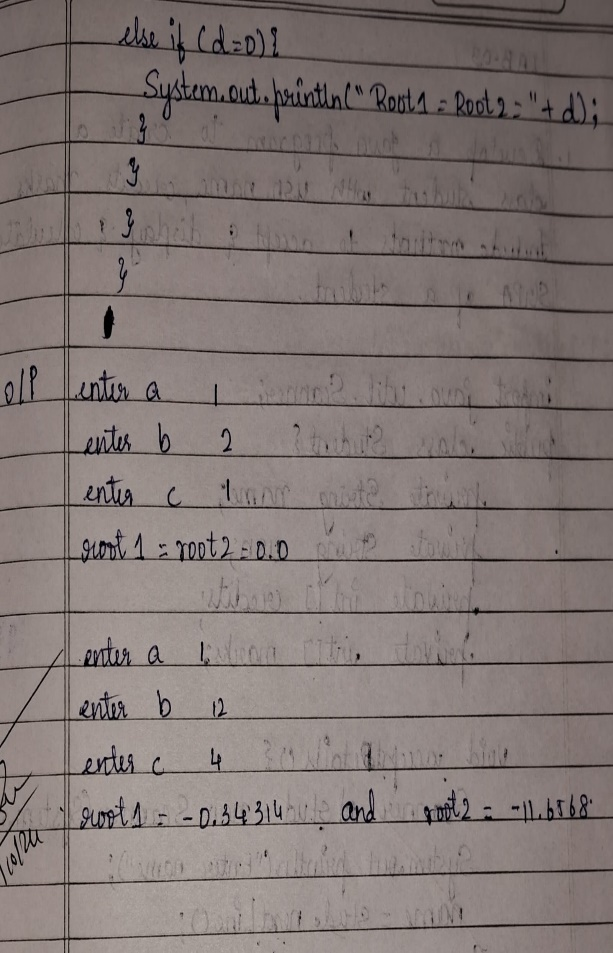 else if (d=0){
System.out.println("Root1 = Root2 = "+ d);
}
}
}
}
O/P enter a 1
enter b 2
enter c 1
root 1 = root2 = 0.0
enter a 1
enter b 12
enter c 4
root 1 = -0.34314 and root2 = -11.6568